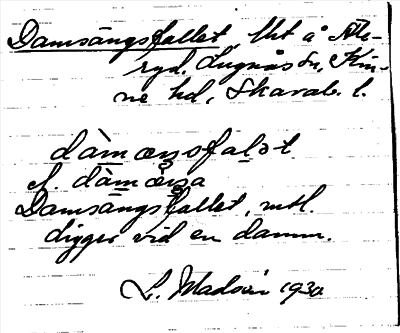 Damsängsfallet, tht å Åke-
ryd. Lugnås sn, Kin-
ne hd, Skarab. l.
dàmæŋsfalət
f. dàmæŋa
Damsängsfallet, mtl.
ligger vid en damm.
L. Madsén 1930